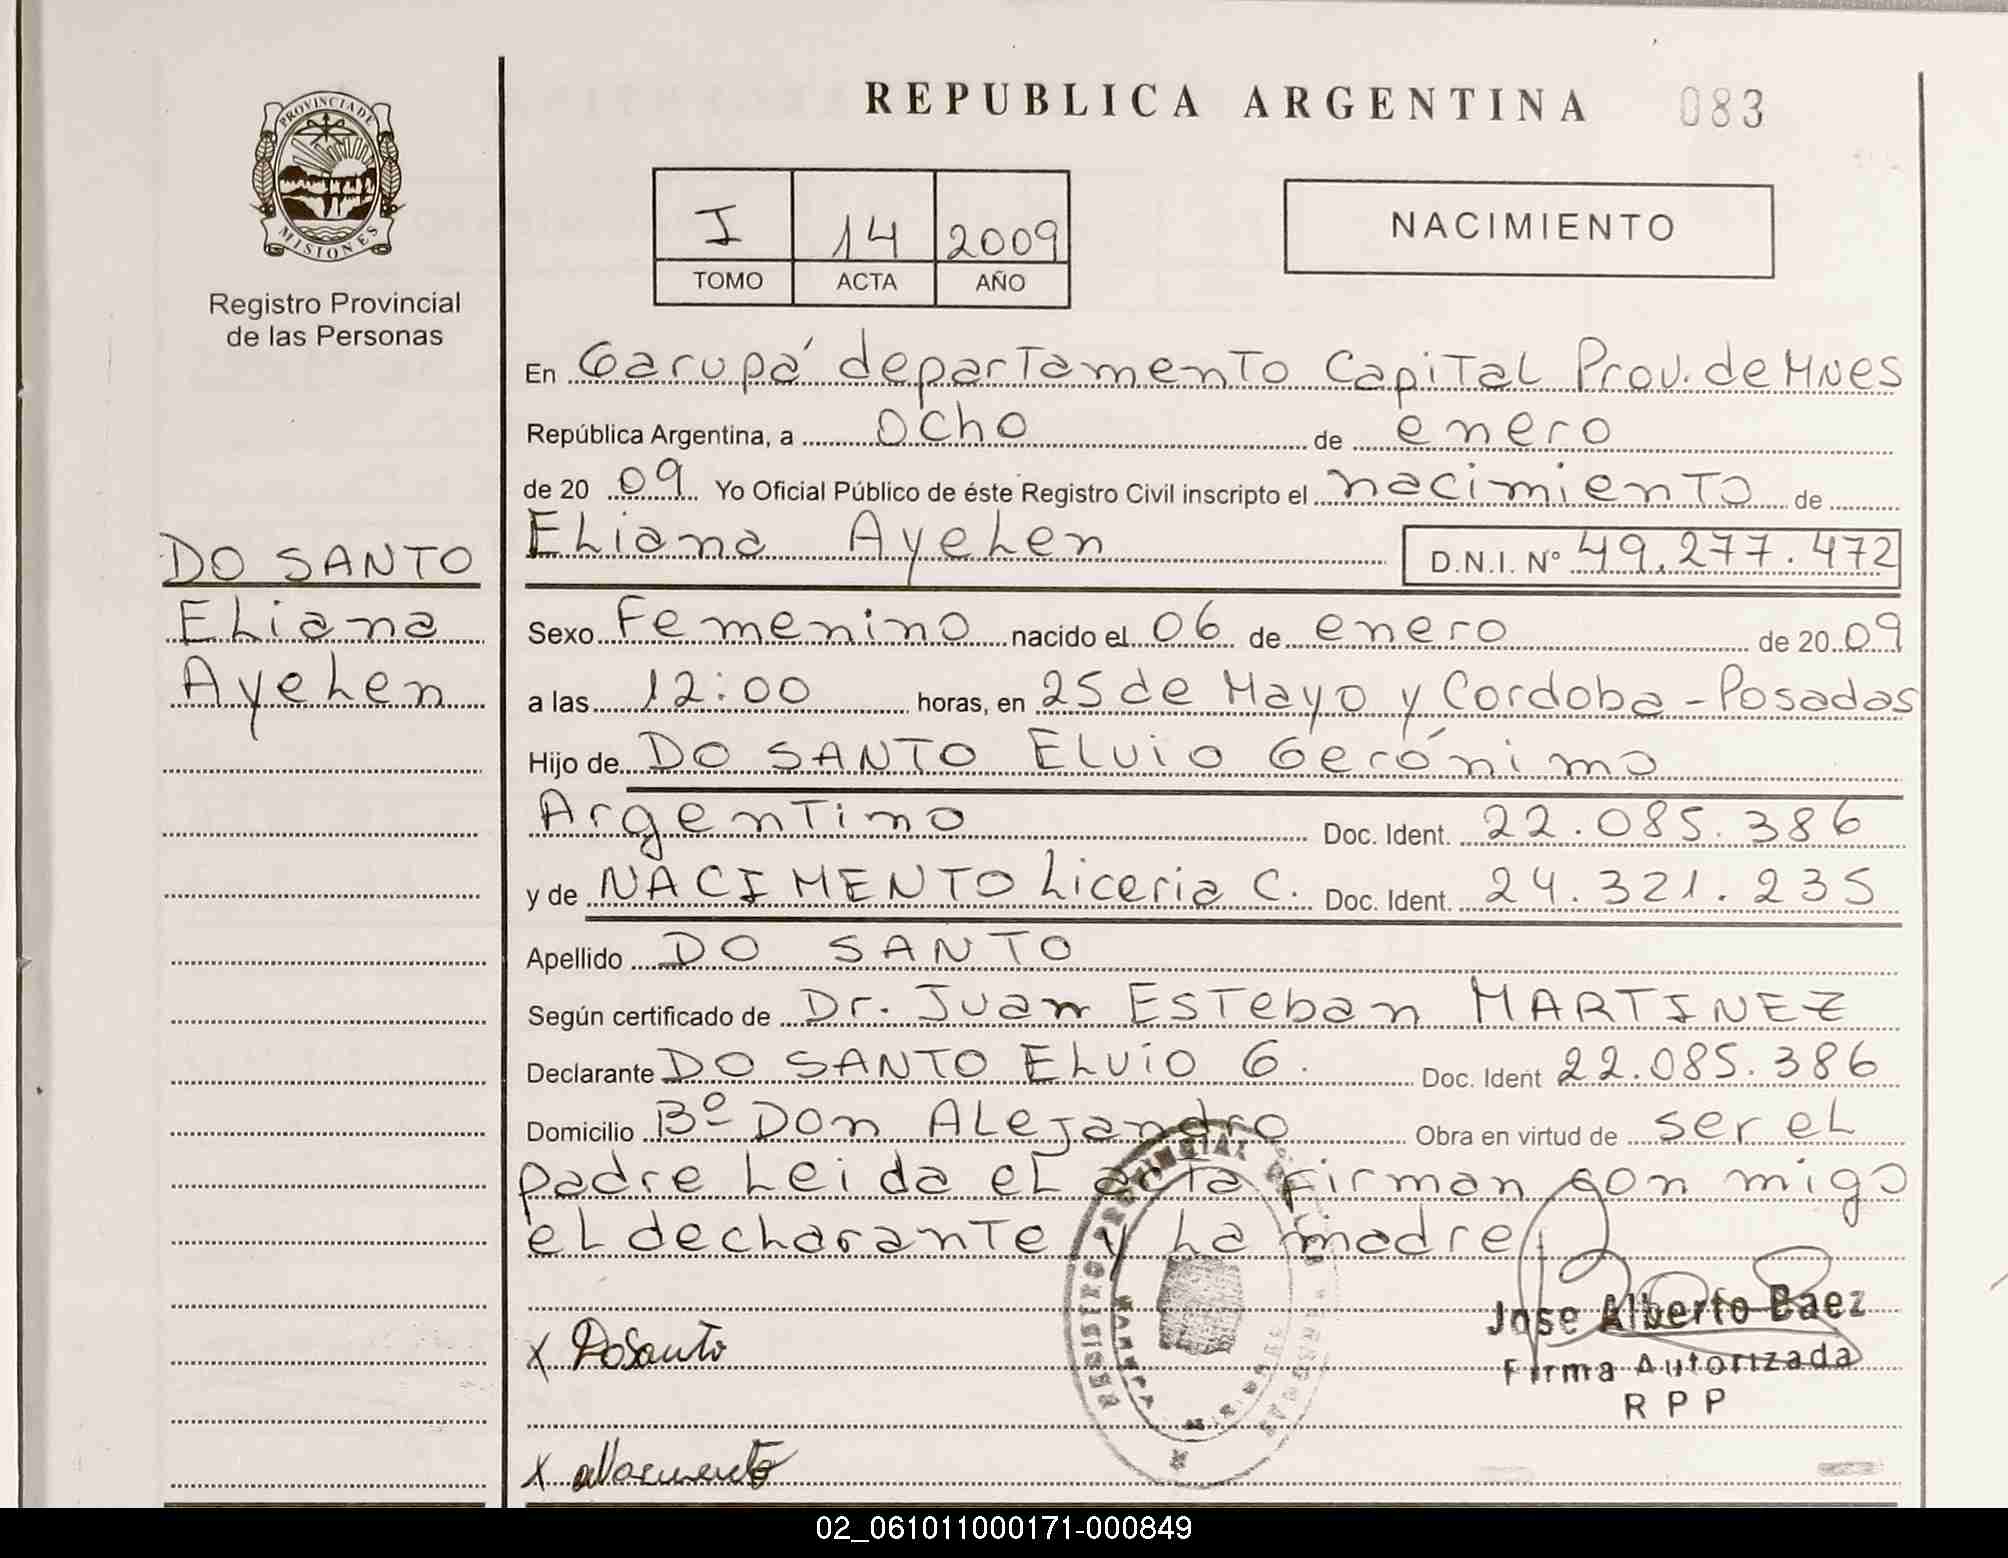 PROVINCIA DE
MISIONES
Registro Provincial
de las Personas
DO SANTO
Eliana
Ayelen
REPUBLICA ARGENTINA 083
I 14 2009
TOMO ACTA AÑO
NACIMIENTO
En Garupá departamento Capital Prov. de Mnes
República Argentina, a ocho de enero
de 20 09 Yo Oficial Público de éste Registro Civil inscripto el nacimiento de
Eliana Ayelen D.N.I. Nº 49.277.472
Sexo Femenino nacido el 06 de enero de 20 09
a las 12:00 horas, en 25 de Mayo y Cordoba - Posadas
Hijo de DO SANTO Elvio Gerónimo
Argentino Doc. Ident. 22.085.386
y de NACIMENTO Liceria C. Doc. Ident. 24.321.235
Apellido DO SANTO
Según certificado de Dr. Juan Esteban MARTINEZ
Declarante DO SANTO Elvio G. Doc. Ident 22.085.386
Domicilio Bº Don Alejandro Obra en virtud de ser el
padre leida el acta firman con migo
el declarante y la madre
Jose Alberto Baez
Firma Autorizada
R P P
x DoSanto
x Nacimento
02_061011000171-000849